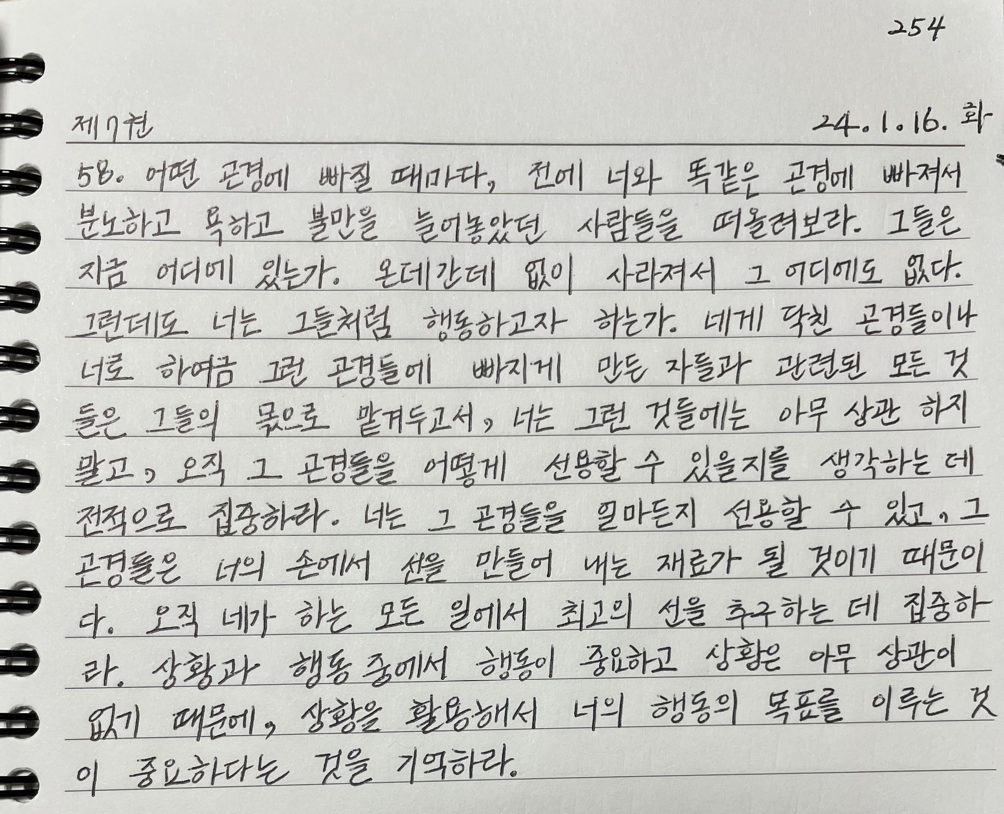 254
제7권
24.1.16. 화
58. 어떤 곤경에 빠질 때마다, 전에 너와 똑같은 곤경에 빠져서
분노하고 욕하고 불만을 늘어놓았던 사람들을 떠올려보라. 그들은
지금 어디에 있는가. 온데간데 없이 사라져서 그 어디에도 없다.
그런데도 너는 그들처럼 행동하고자 하는가. 네게 닥친 곤경들이나
너로 하여금 그런 곤경들에 빠지게 만든 자들과 관련된 모든 것
들은 그들의 몫으로 맡겨두고서, 너는 그런 것들에는 아무 상관 하지
말고, 오직 그 곤경들을 어떻게 선용할 수 있을지를 생각하는 데
전적으로 집중하라. 너는 그 곤경들을 얼마든지 선용할 수 있고, 그
곤경들은 너의 손에서 선을 만들어 내는 재료가 될 것이기 때문이
다. 오직 네가 하는 모든 일에서 최고의 선을 추구하는 데 집중하
라. 상황과 행동 중에서 행동이 중요하고 상황은 아무 상관이
없기 때문에, 상황을 활용해서 너의 행동의 목표를 이루는 것
이 중요하다는 것을 기억하라.